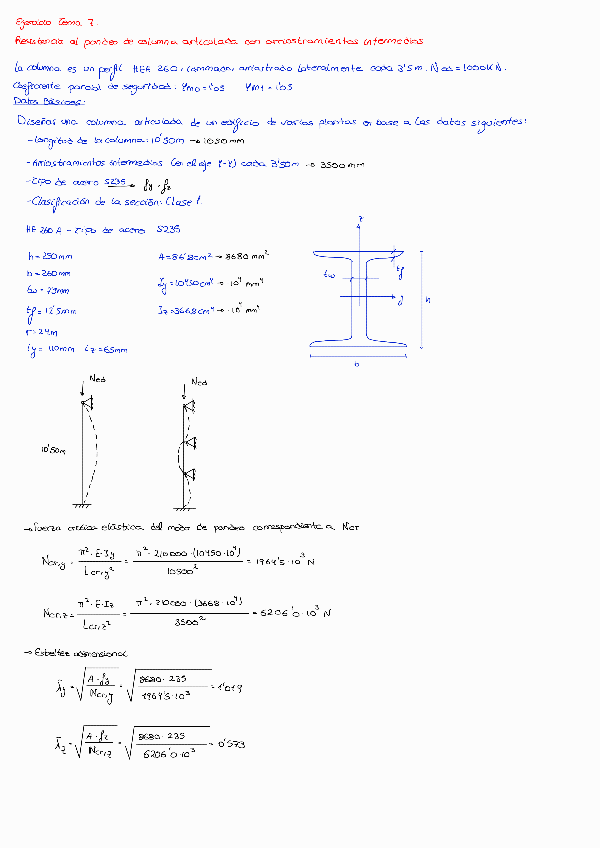 Ejercicio Tema 7.
Resistencia al pandeo de columna articulada con arriostramientos intermedios
La columna es un perfil HEA 260, laminado, arriostrado lateralmente cada 3'5m. NEd = 1000kN.
Coeficiente parcial de seguridad. γM0=1'05 γM1=1'05
Datos Básicos:
Diseñar una columna articulada de un edificio de varias plantas en base a las datos siguientes:
- Longitud de la columna: 10'50m → 1050mm
- Arriostramientos intermedios (en el eje Y-Y) cada 3'50m → 3500mm
- Tipo de acero S235 → fy - fz
- Clasificación de la sección: Clase 1.
HE 260 A - Tipo de acero S235
h=250mm A=86'8cm² → 8680 mm²
b=260mm
Iy=10450cm⁴ → 10⁴ mm⁴
tw=7'5mm
tf=12'5mm Iz=3668cm⁴ → ·10⁴ mm⁴
r=24m
iy= 110mm iz=65mm
z
tw
tf
y
h
b
Ned
Ned
10'50m
→ Fuerza crítica elástica del modo de pandeo correspondiente a Ncr
Ncr,y = π²·E·Iy / Lcr,y² = π²·210000·(10450·10⁴) / 10500² = 1964'5·10³ N
Ncr,z = π²·E·Iz / Lcr,z² = π²·210000·(3668·10⁴) / 3500² = 6206'0·10³ N
→ Esbeltez adimensional
λ̄y = √(A·fy / Ncr,y) = √(8680·235 / 1964'5·10³) = 1'019
λ̄z = √(A·fz / Ncr,z) = √(8680·235 / 6206'0·10³) = 0'573